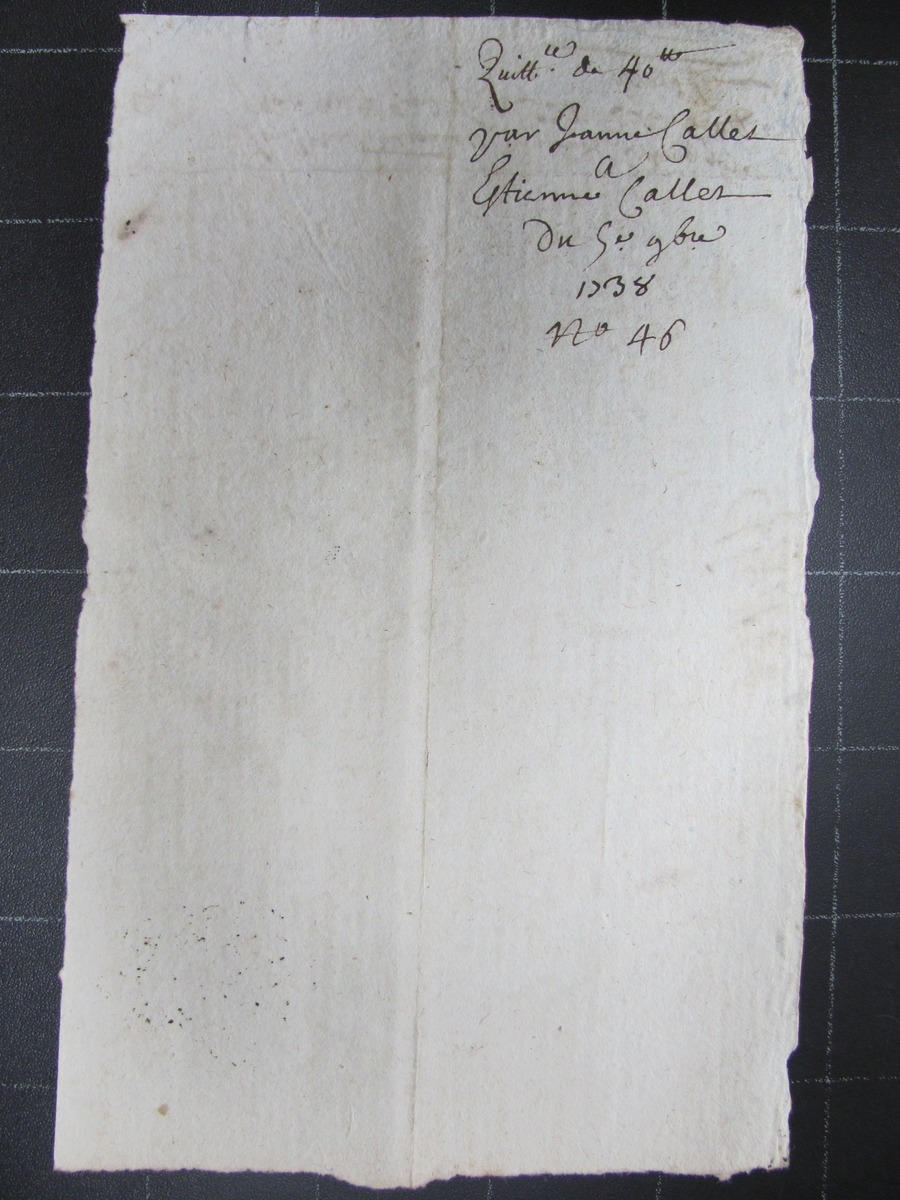 Quitt.ce de 40tt
par Jeanne Callet
A
Estienne Callet
Du 5e 9bre
1738
No 46